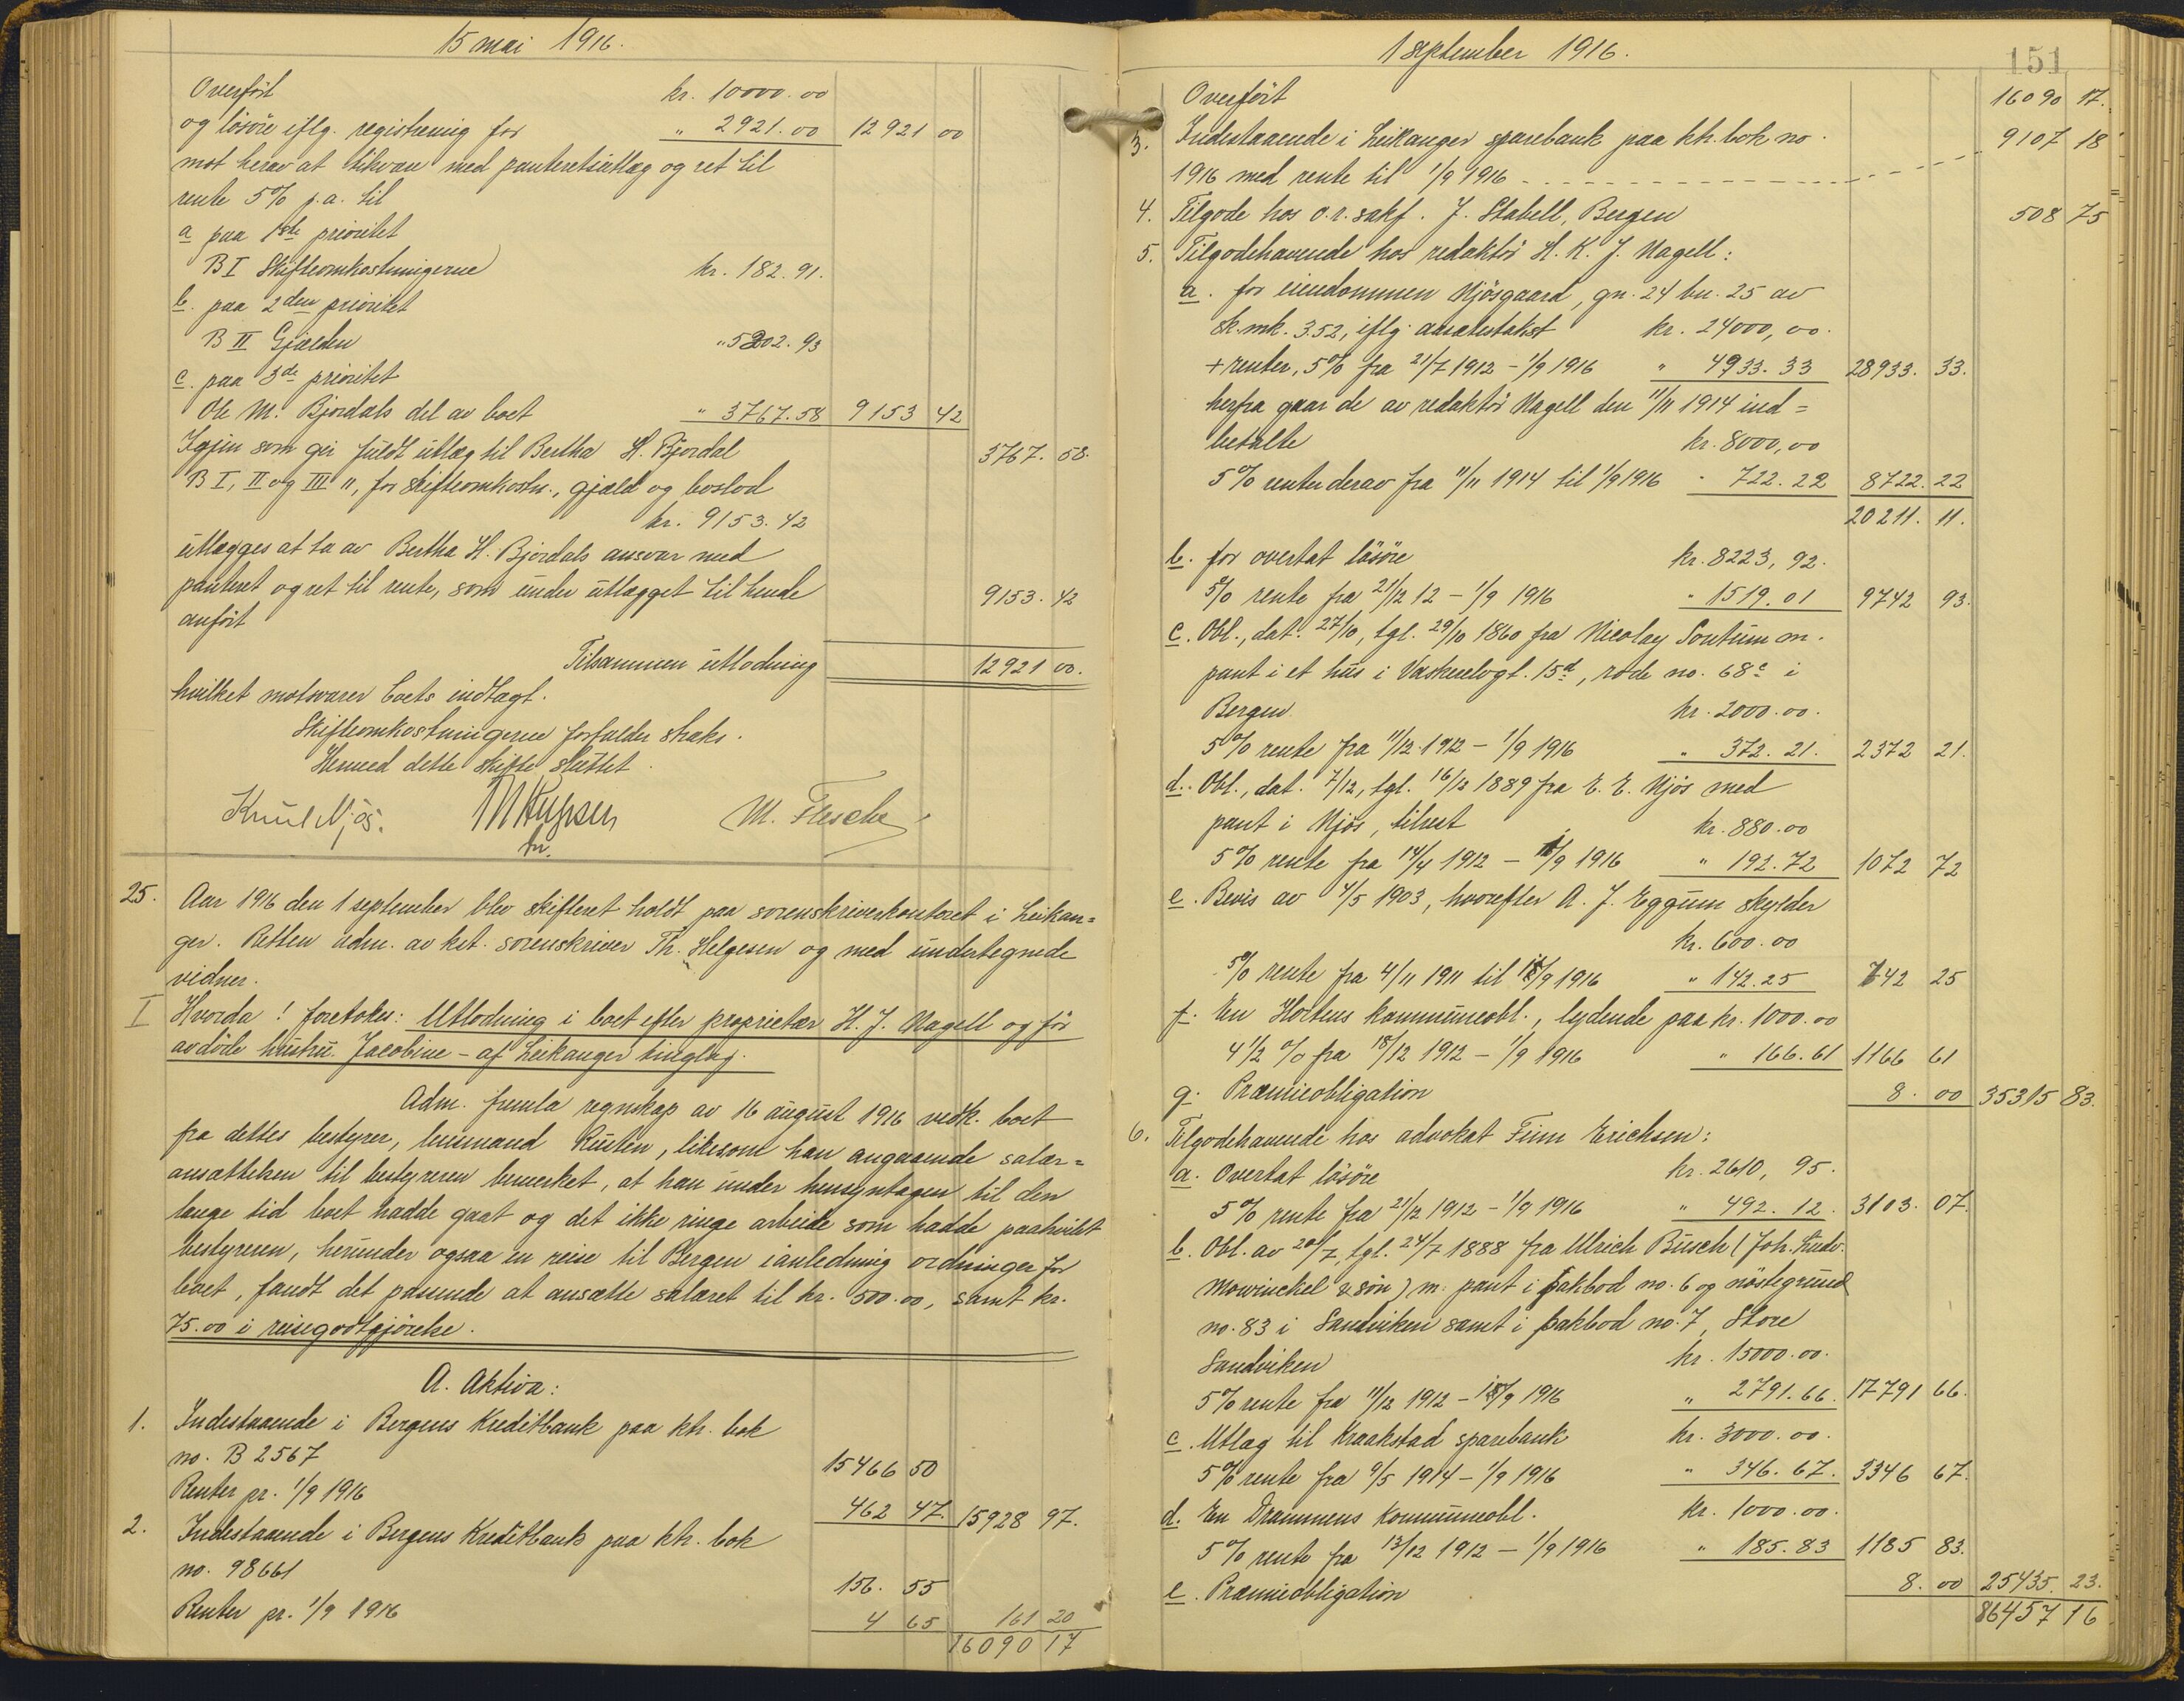 15 mai 1916.
Overført kr. 10000.00
og løsøre iflg. registrering for " 2921.00 12921 00
mot herav at tilsvare med panteretsutlæg og ret til
rente 5% p.a. til
a paa 1ste prioritet
B I Skifteomkostningerne kr. 182.91.
b. paa 2den prioritet
B II Gjælden " 5202.93
c. paa 3de prioritet
Ole M. Bjordals del av boet " 3767.58 9153 42
Igjen som gir fuldt utlæg til Bertha H. Bjordal 3767.58.
B I, II og III 11, for skifteomkostn., gjæld og boslod
kr. 9153.42
utlægges at ta av Bertha H. Bjordals ansvar med
panteret og ret til rente, som under utlægget til hende 9153.42
anført
Tilsammen utlodning 12921 00.
hvilket motsvarer boets indtægt.
Skifteomkostningerne forfalder straks.
Hermed dette skifte sluttet.
Knut Njøs. M. Flesche
25. Aar 1916 den 1 september blev skifteret holdt paa sorenskriverkontoret i Leikan=
ger. Retten adm. av kst. sorenskriver Th. Helgesen og med undertegnede
vidner.
I Hvorda! foretokes: Utlodning i boet efter proprietær H. J. Nagell og før
avdøde hustru Jacobine - af Leikanger tinglag.
Adm. fremla regnskap av 16 august 1916 vedk. boet
fra dettes bestyrer, lensmand Husten, likesom han angaaende salær=
ansættelsen til bestyreren bemerket, at han under hensyntagen til den
lange tid boet hadde gaat og det ikke ringe arbeide som hadde paahvilt
bestyreren, herunder ogsaa en reise til Bergen i anledning ordninger for
boet, fandt det passende at ansætte salæret til kr. 500.00, samt kr.
75.00 i reisegodtgjørelse.
A. Aktiva:
1. Indestaaende i Bergens Kreditbank paa ktr. bok
no. B 2567 15466 50
Renter pr. 1/9 1916 462 47. 15928 97.
2. Indestaaende i Bergens Kreditbank paa ktr. bok
no. 98661 156. 55
Renter pr. 1/9 1916 4 65 161 20
16090 17
1 september 1916.
151
Overført 16090 17.
3. Indestaaende i Leikanger sparebank paa ktr. bok no. 9107 18
1916 med rente til 1/9 1916
4. Tilgode hos o.r. sakf. J. Stabell, Bergen 508 75
5. Tilgodehavende hos redaktør H. K. J. Nagell:
a. for eiendommen Njøsgaard, gn. 24 bn. 25 av
sk. mk. 3.52, iflg. ansættelsestakst kr. 24000,00.
+ renter, 5% fra 21/7 1912 - 1/9 1916 " 4933.33 28933. 33.
herfra gaar de av redaktør Nagell den 11/11 1914 ind=
betalte kr. 8000,00
5% renter derav fra 11/11 1914 til 1/9 1916 " 722.22 8722. 22
20211. 11.
b. for overtat løsøre kr. 8223,92.
5% rente fra 21/12 12 - 1/9 1916 " 1519.01 9742 93.
c. Obl., dat. 27/10, tgl. 29/10 1860 fra Nicolay Sontum m.
pant i et hus i Vaskerelvgt. 15d, rode no. 68c i
Bergen kr. 2000.00.
5% rente fra 11/12 1912 - 1/9 1916 " 372.21. 2372 21.
d. Obl., dat. 7/12, tgl. 16/12 1889 fra E. E. Njøs med
pant i Njøs, tilrest kr. 880.00
5% rente fra 14/4 1912 - 1/9 1916 " 192.72 1072 72
e. Bevis av 4/5 1903, hvorefter A. J. Eggum skylder
kr. 600.00
5% rente fra 4/11 1911 til 1/9 1916 " 142.25 742 25
f. En Hortens kommuneobl., lydende paa kr. 1000.00
4 1/2 % fra 18/12 1912 - 1/9 1916 " 166.61 1166 61
g. Præmieobligation 8. 00 35315 83.
6. Tilgodehavende hos advokat Finn Erichsen:
a. Overtat løsøre kr. 2610,95.
5% rente fra 21/12 1912 - 1/9 1916 " 492.12. 3103. 07.
b. Obl. av 20/7, tgl. 24/7 1888 fra Ulrich Busch (Joh. Ludv.
Mowinckel & søn) m. pant i pakbod no. 6 og nøstegrund
no. 83 i Sandviken samt i pakbod no. 7, Store
Sandviken kr. 15000.00.
5% rente fra 11/12 1912 - 1/9 1916 " 2791.66. 17791 66.
c. Utlæg til Kraakstad sparebank kr. 3000.00.
5% rente fra 9/5 1914 - 1/9 1916 " 346.67. 3346 67.
d. En Drammens kommuneobl. kr. 1000.00.
5% rente fra 13/12 1912 - 1/9 1916 " 185.83 1185 83.
e. Præmieobligation 8. 00 25435. 23.
86457 16